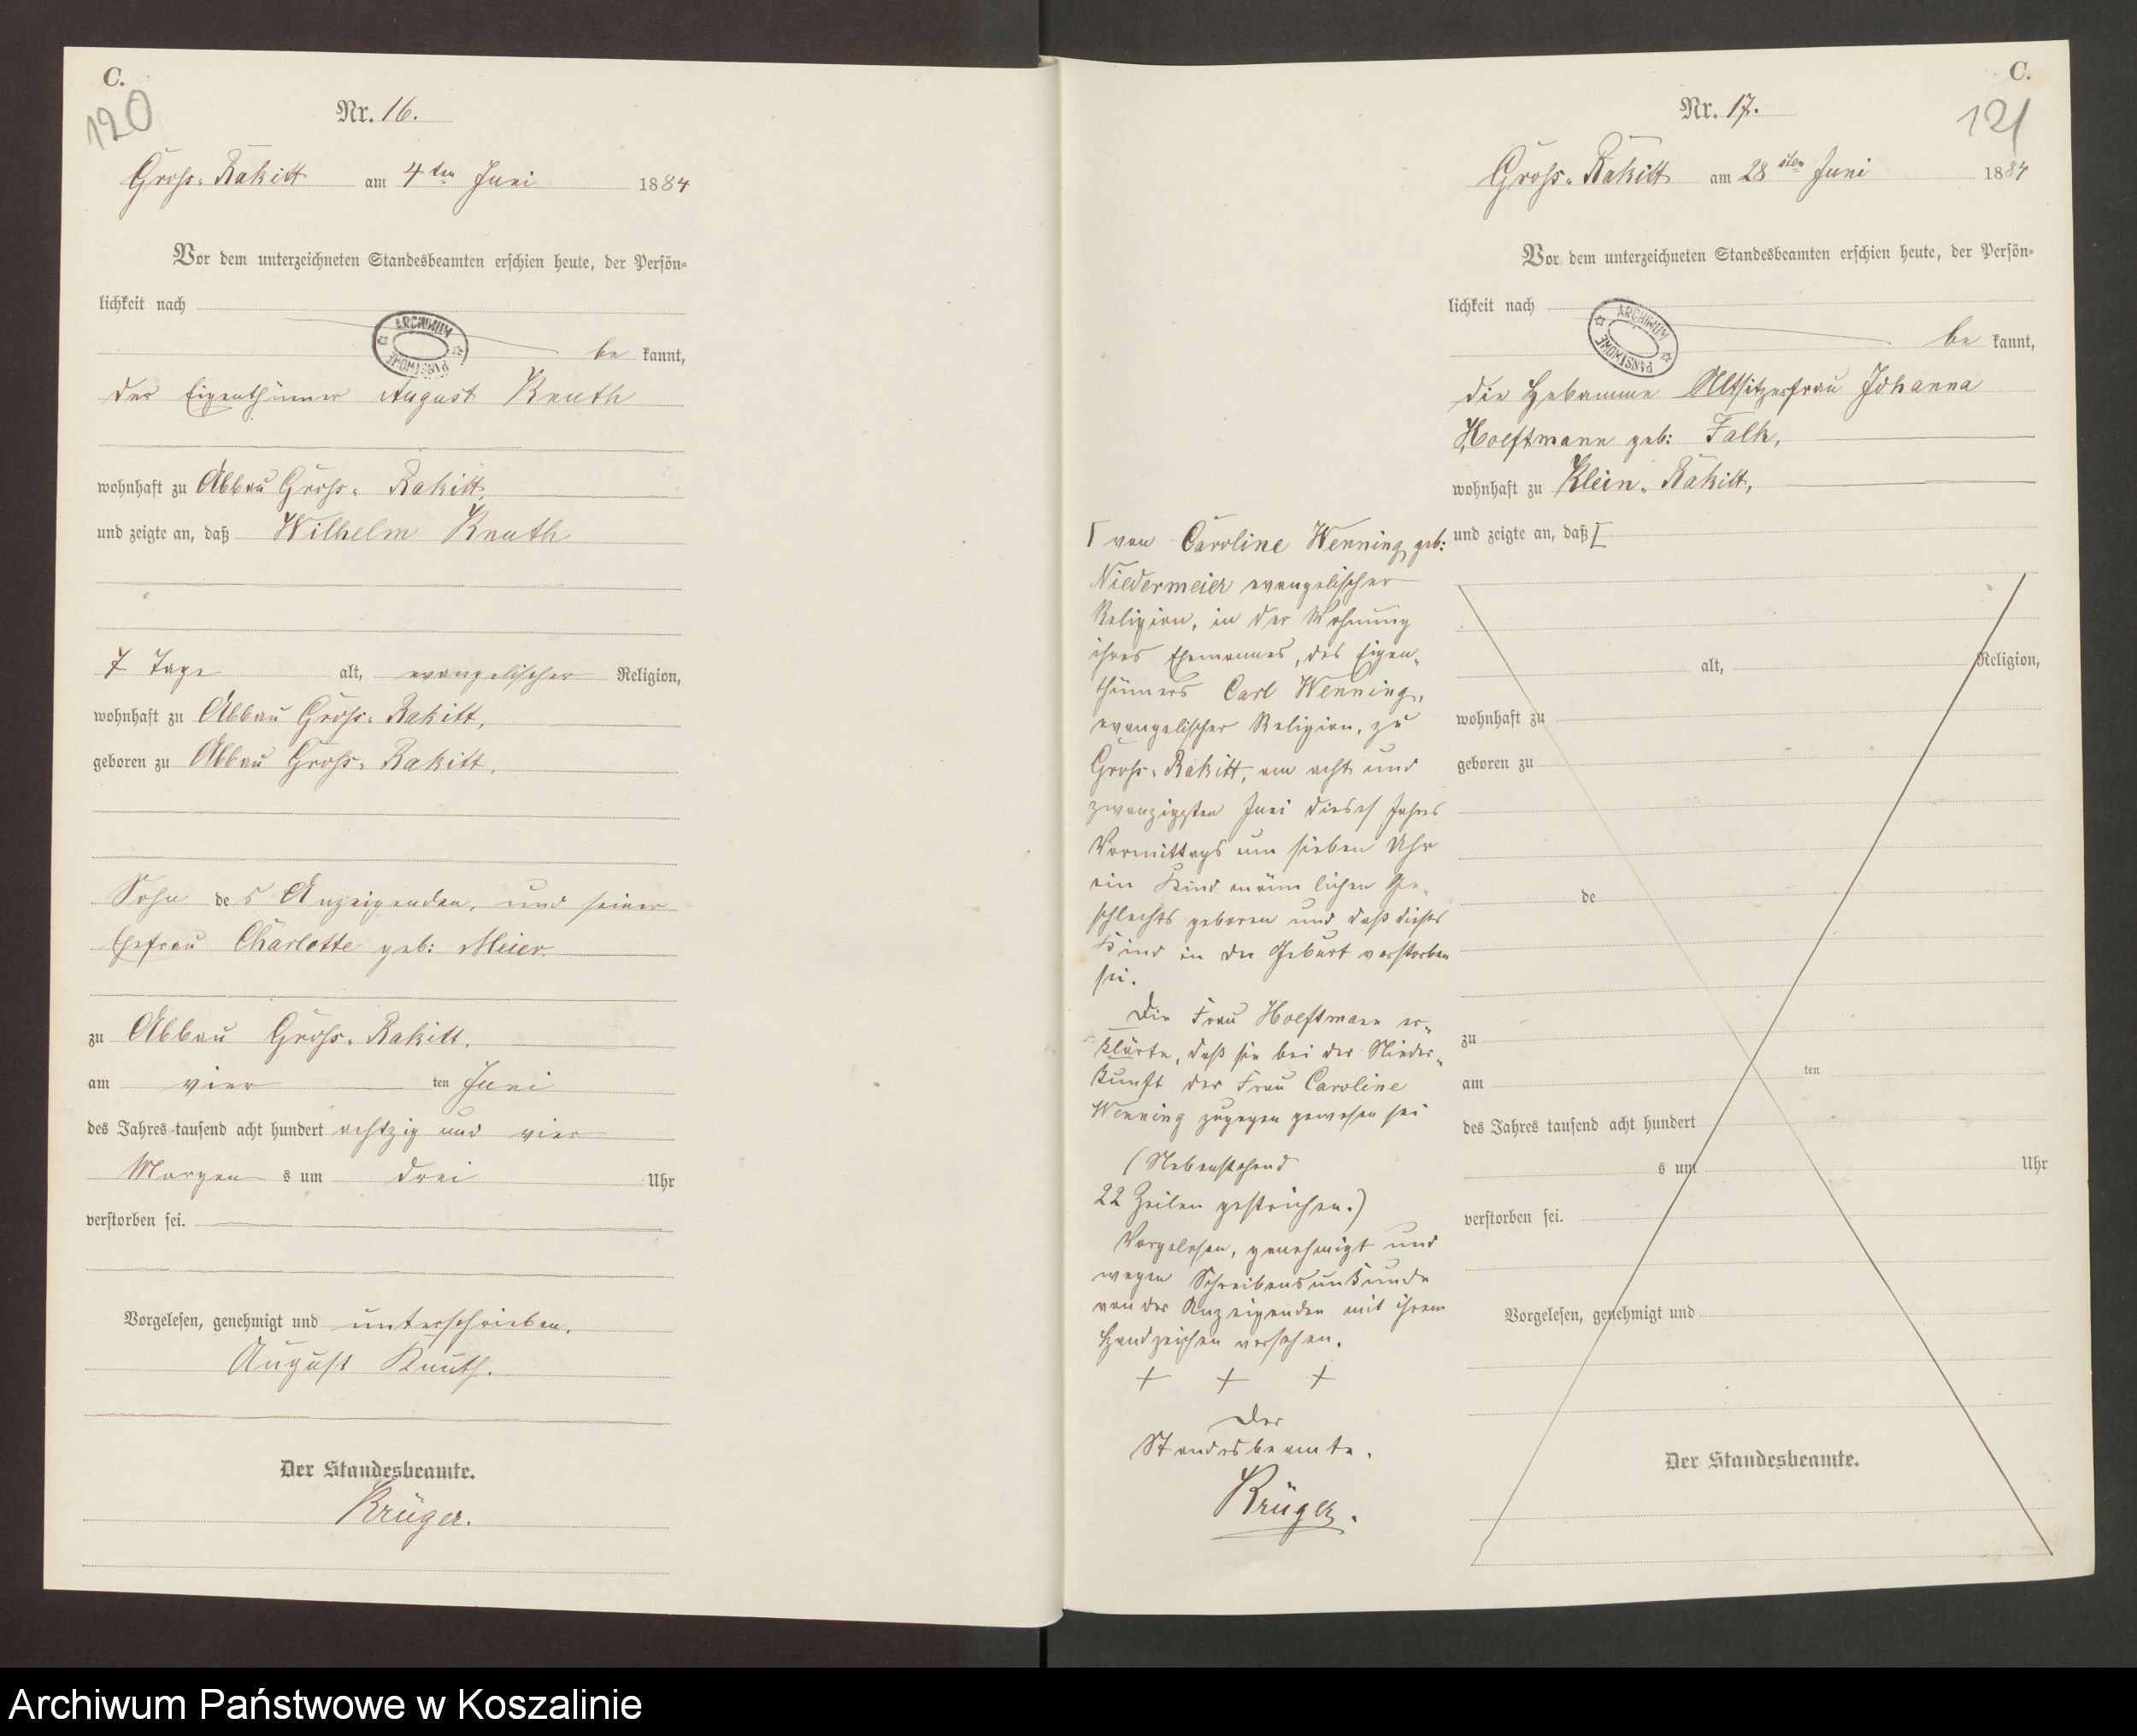 C.
120
Nr. 16.
Gross-Rakitt am 4ten Juni 1884
Vor dem unterzeichneten Standesbeamten erschien heute, der Persön-
lichkeit nach
ARCHIWUM PAŃSTWOWE
be kannt,
der Eigenthümer August Knuth
wohnhaft zu Abbau Gross-Rakitt,
und zeigte an, daß Wilhelm Knuth
7 Tage alt, evangelischer Religion,
wohnhaft zu Abbau Gross-Rakitt,
geboren zu Abbau Gross-Rakitt,
Sohn des Anzeigenden, und seiner
Ehefrau Charlotte geb: Meier.
zu Abbau Gross-Rakitt,
am vier ten Juni
des Jahres tausend acht hundert achtzig und vier
Morgens um drei Uhr
verstorben sei.
Vorgelesen, genehmigt und unterschrieben.
August Knuth.
Der Standesbeamte.
Krüger.
C.
121
Nr. 17.
Gross-Rakitt am 28sten Juni 1884
Vor dem unterzeichneten Standesbeamten erschien heute, der Persön-
lichkeit nach
ARCHIWUM PAŃSTWOWE
be kannt,
die Hebamme Altsitzerfrau Johanna
Hoeftmann geb: Falk,
wohnhaft zu Klein-Rakitt,
und zeigte an, daß ſ
alt, Religion,
wohnhaft zu
geboren zu
de
zu
am ten
des Jahres tausend acht hundert
s um Uhr
verstorben sei.
Vorgelesen, genehmigt und
Der Standesbeamte.
ſ von Caroline Wenning geb:
Niedermeier evangelischer
Religion, in der Wohnung
ihres Ehemannes, des Eigen-
thümers Carl Wenning,
evangelischer Religion, zu
Gross-Rakitt, am acht und
zwanzigsten Juni dieses Jahres
Vormittags um sieben Uhr
ein Kind männlichen Ge-
schlechts geboren und daß dieses
Kind in der Geburt verstorben
sei.
Die Frau Hoeftmann er-
klärte, daß sie bei der Nieder-
kunft der Frau Caroline
Wenning zugegen gewesen sei
(Nebenstehend
22 Zeilen gestrichen.)
Vorgelesen, genehmigt und
wegen Schreibensunkunde
von der Anzeigenden mit ihrem
Handzeichen versehen.
+ + +
Der
Standesbeamte.
Krüger.
Archiwum Państwowe w Koszalinie